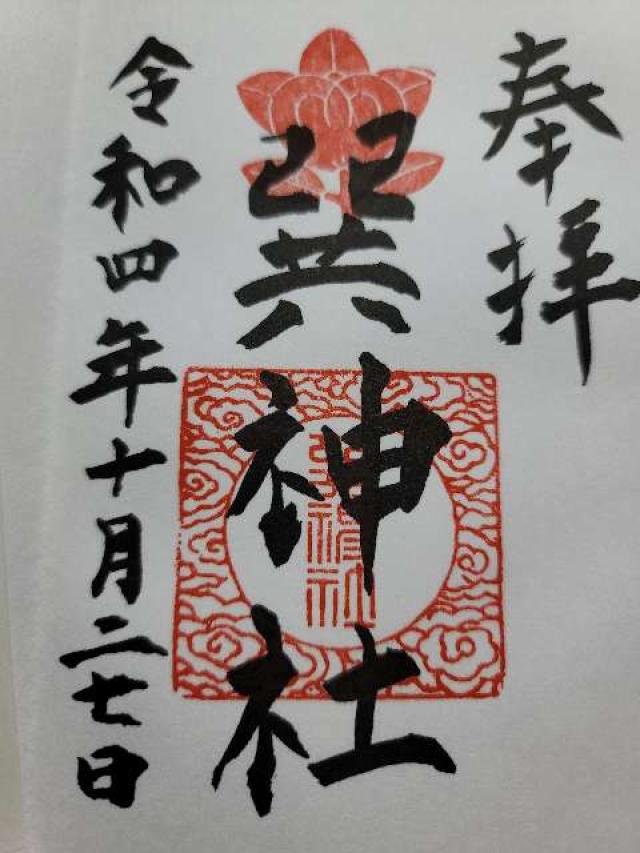 奉拝
巽神社
令和四年十月二七日